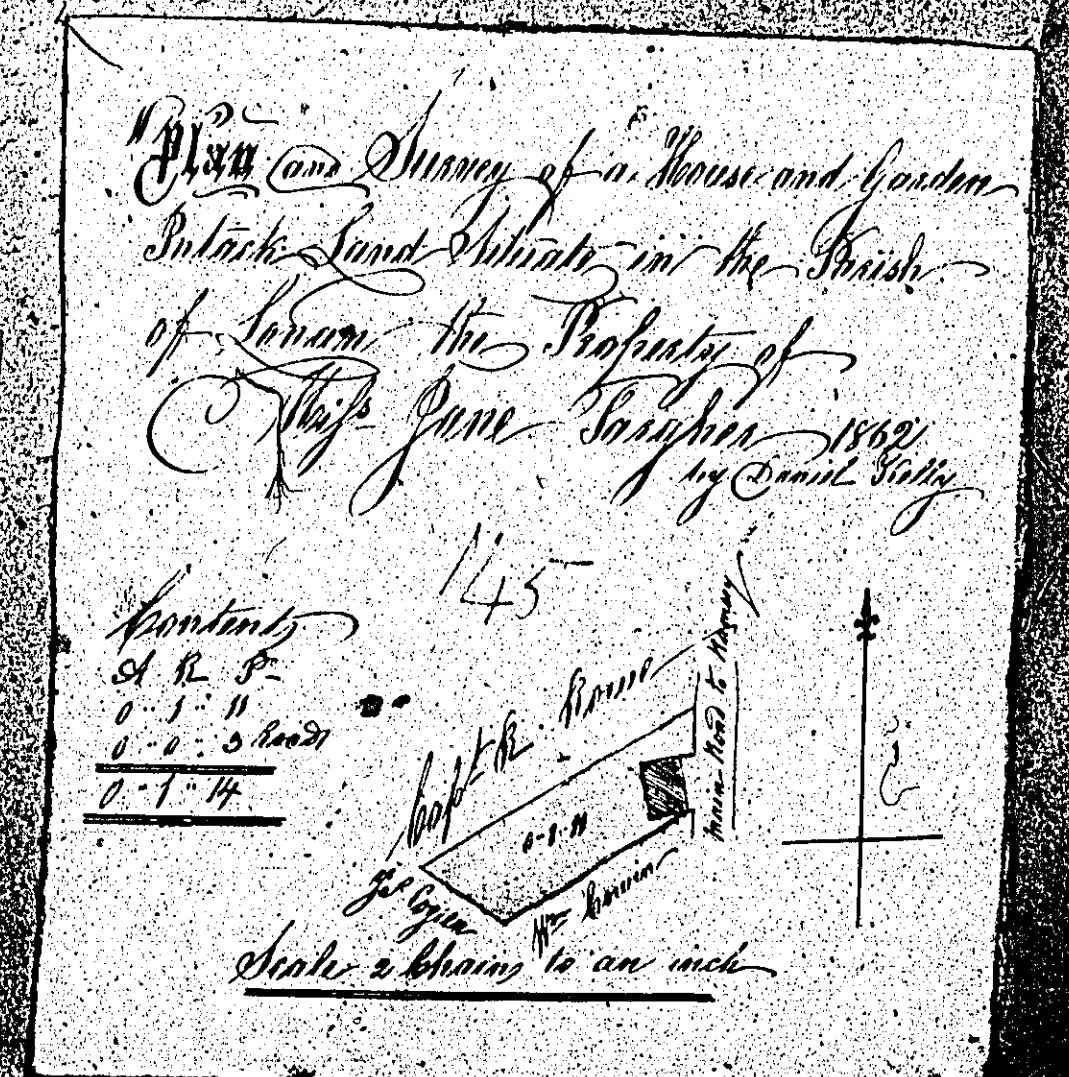 Plan and Survey of a House and Garden
Intack Land Situate in the Parish
of Lonan the Property of
Miss Jane Faragher 1862
by Daniel Kelly
145
Contents
A R P
0 " 1 " 11
0 " 0 " 3 Road
0 " 1 " 14
Capt R.
main Road to Ramsey
0-1-11
Wm
Scale 2 Chains to an inch